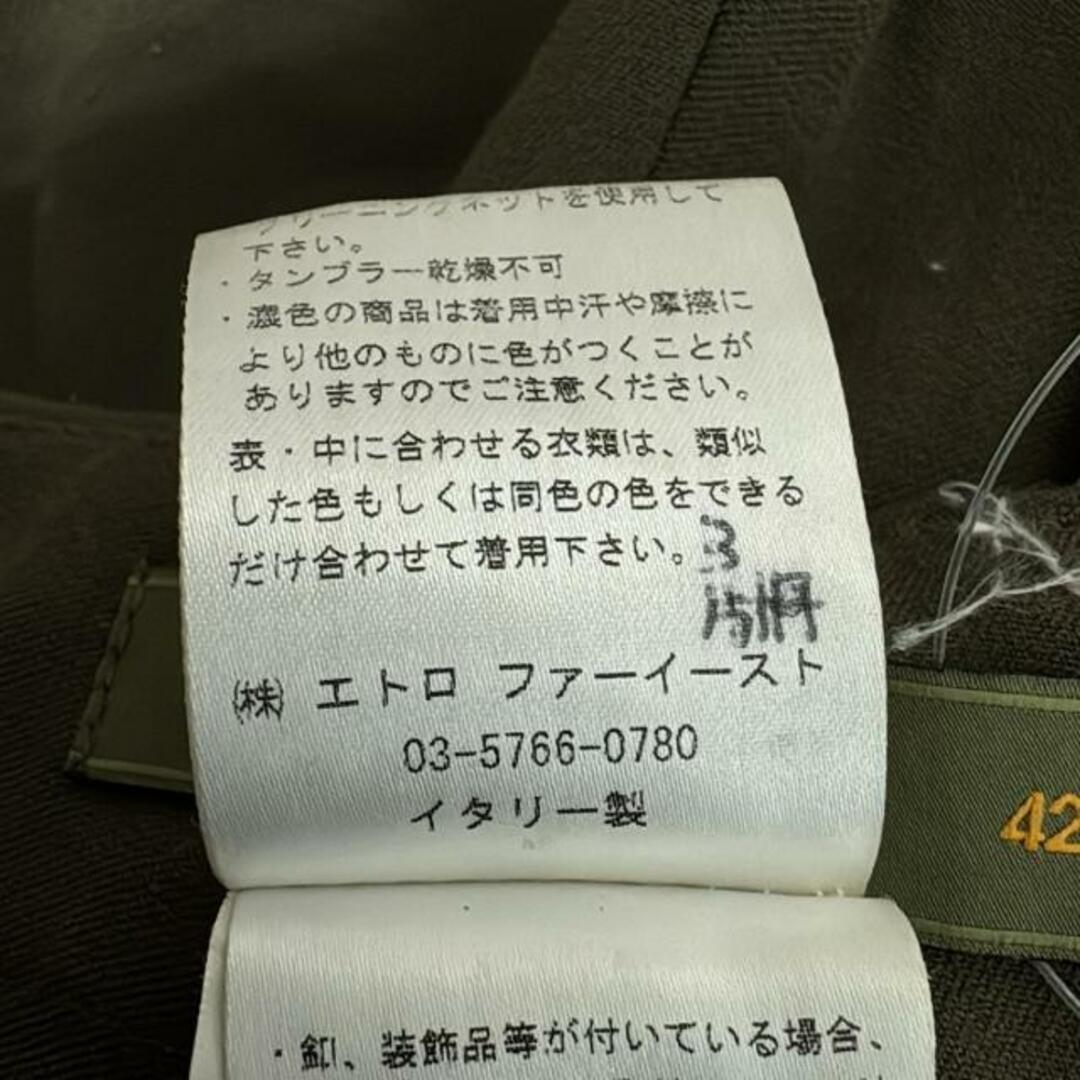 クリーニングネットを使用して
下さい。
・タンブラー乾燥不可
・濃色の商品は着用中汗や摩擦に
より他のものに色がつくことが
ありますのでご注意ください。
表・中に合わせる衣類は、類似
した色もしくは同色の色をできる
だけ合わせて着用下さい。
3
㈱ エトロ ファーイースト
03-5766-0780
イタリー製
42
・釦、装飾品等が付いている場合、